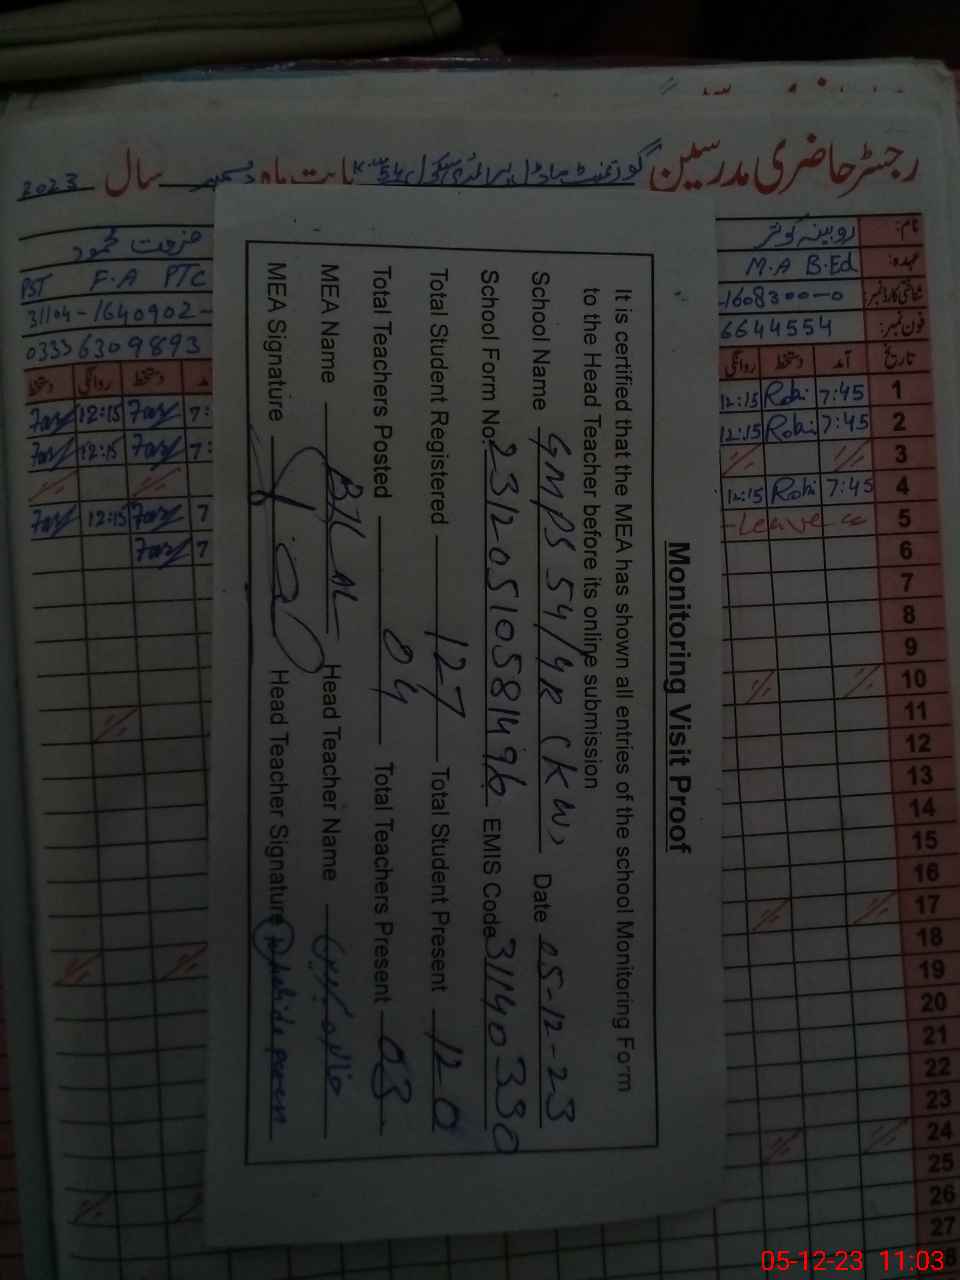 رجسٹر حاضری مدرسین گورنمنٹ ماڈل پرائمری سکول بابت ماہ دسمبر سال 2023
نام: روبینہ کوثر
محمود
عہدہ: M.A B.Ed
F.A PTC PST
شناختی کارڈ نمبر: -1608300-0
31104-1640902-
فون نمبر: 6644554
0333 6309893
تاریخ آمد دستخط روانگی
دستخط روانگی دستخط
1 7:45 Robi 12:15
12:15 7:
2 7:45 Robi 12:15
12:15 7:
3
4 7:45 Robi 12:15
12:15 7
5 Leave
7
6
7
8
9
10
11
12
13
14
15
16
17
18
19
20
21
22
23
24
25
26
27
Monitoring Visit Proof
It is certified that the MEA has shown all entries of the school Monitoring Form
to the Head Teacher before its online submission
School Name GMPS 54/4R (KW) Date 05-12-23
School Form No. 23120510581496 EMIS Code 31140330
Total Student Registered 127 Total Student Present 120
Total Teachers Posted 04 Total Teachers Present 03
MEA Name BILAL Head Teacher Name
MEA Signature Head Teacher Signature
05-12-23 11:03